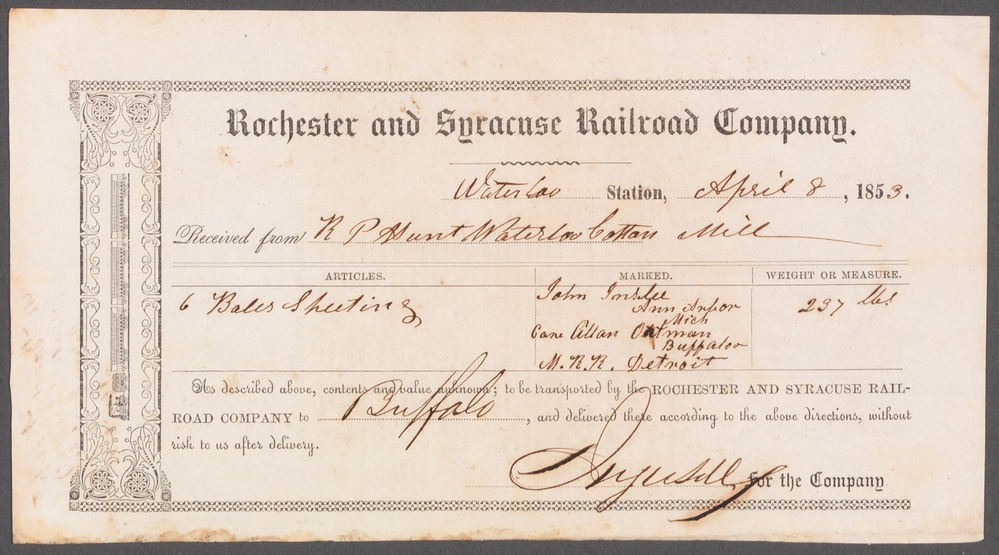 Rochester and Syracuse Railroad Company.
Waterloo Station, April 8, 1853.
Received from R P Hunt Waterloo Cotton Mill
ARTICLES. MARKED. WEIGHT OR MEASURE.
6 Bales Sheeting John Inslee 237 lbs
Ann Arbor
Mich
Care Allan Oatman
Buffaloo
M.R.R. Detroit
As described above, contents and value unknown; to be transported by the ROCHESTER AND SYRACUSE RAIL-
ROAD COMPANY to Buffalo, and delivered there according to the above directions, without
risk to us after delivery.
for the Company